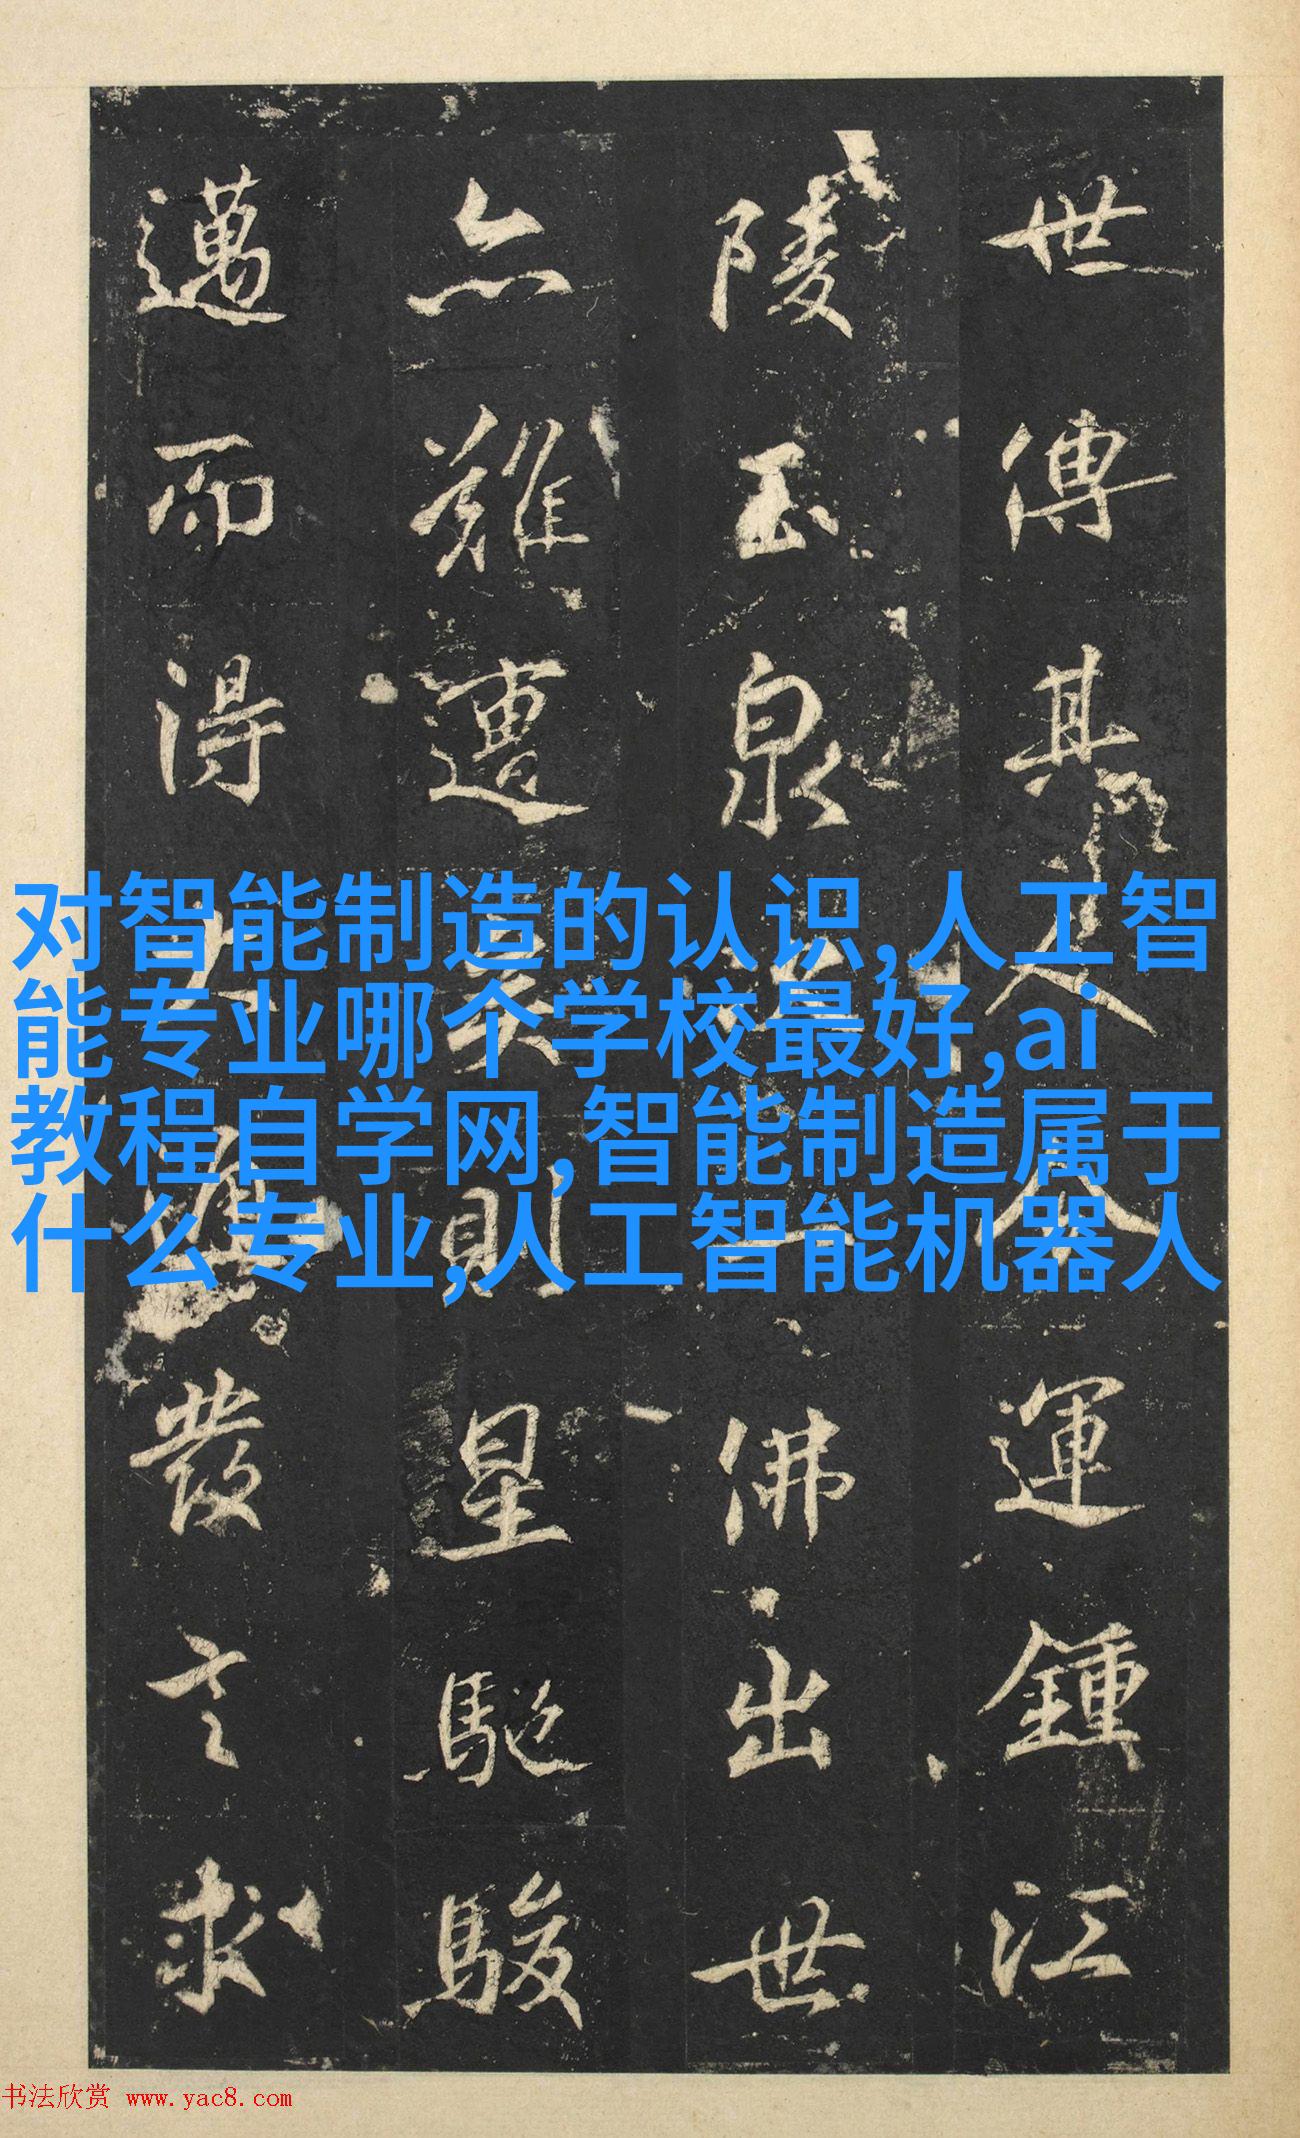 世傳其人今運鍾江
陵玉泉道一佛出世
亦難遭矣則星馳駿
邁而得大頓發之求
对智能制造的认识,人工智
能专业哪个学校最好,ai
教程自学网,智能制造属于
什么专业,人工智能机器人
书法欣赏 www.yac8.com